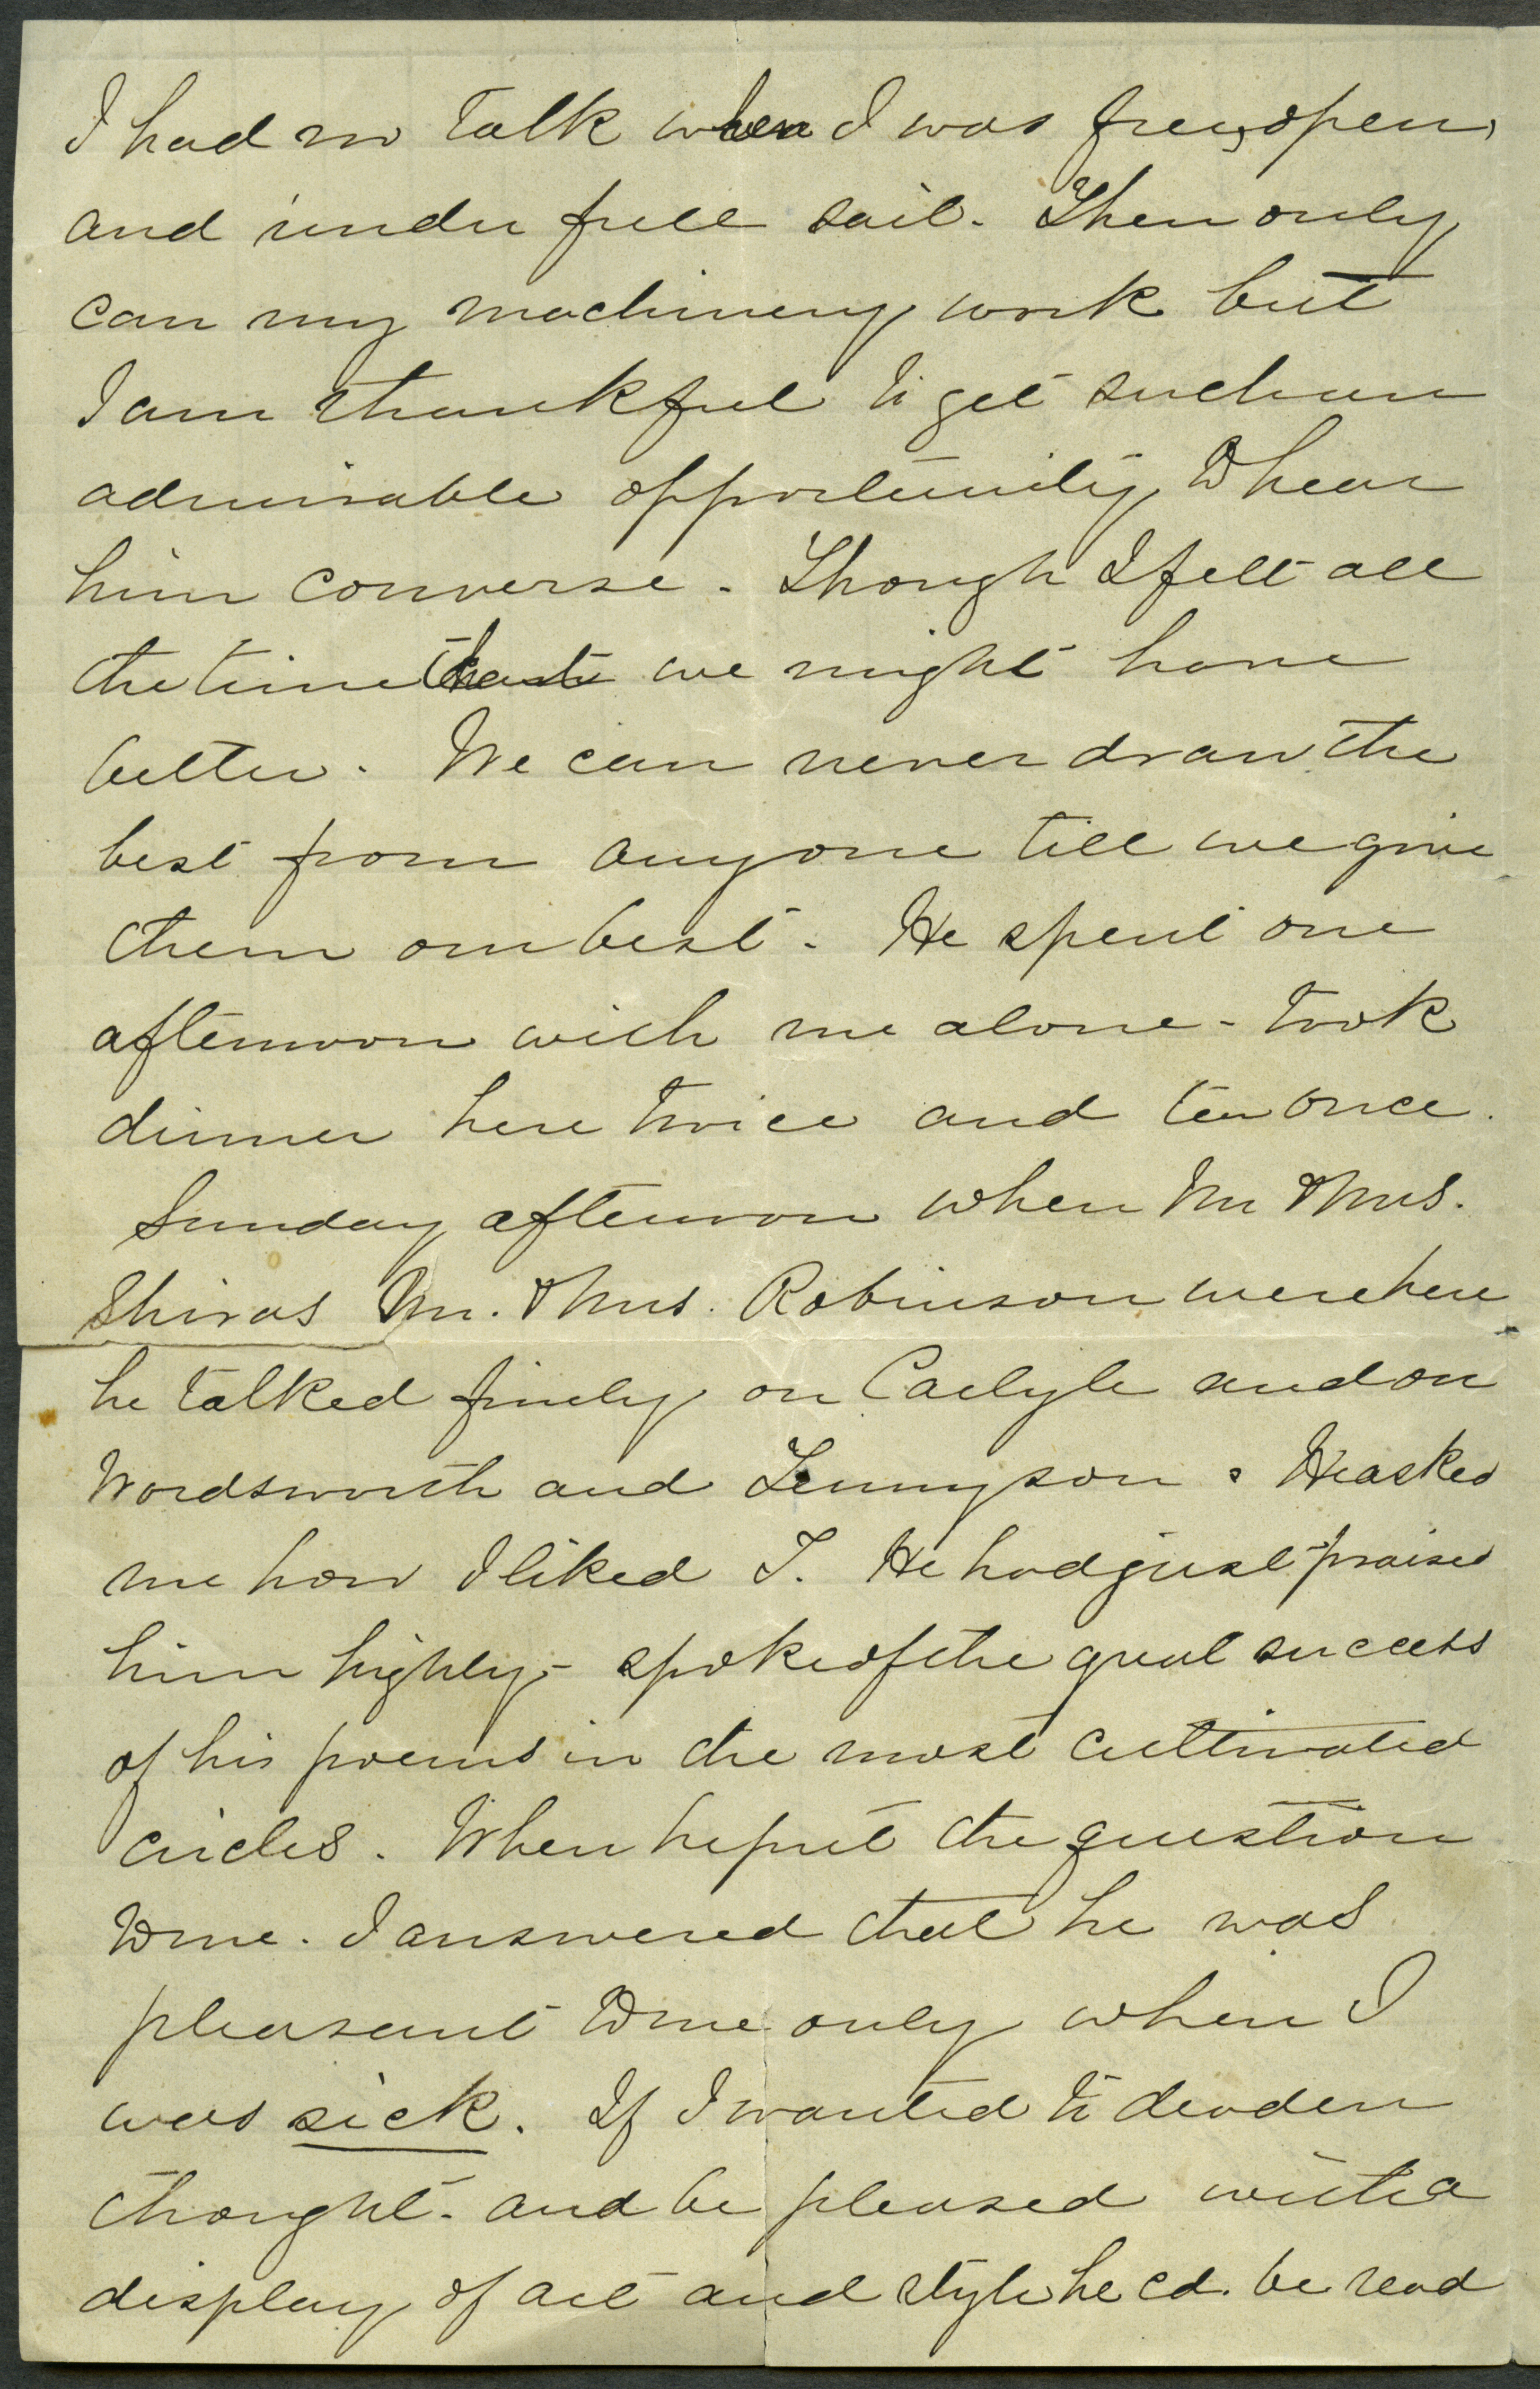 I had no talk when I was free, open,
and under full sail. Then only
can my machinery work but
I am thankful to get such an
admirable opportunity to hear
him converse. Though I felt all
the time that we might have
better. We can never draw the
best from anyone till we give
them our best. He spent one
afternoon with me alone - took
dinner here twice and tea once.
Sunday afternoon when Mr & Mrs.
Shiras Mr. & Mrs. Robinson were here
he talked finely on Carlyle and on
Wordsworth and Tennyson. He asked
me how I liked T. He had just praised
him highly - spoke of the great success
of his poems in the most cultivated
circles. When he put the question
to me. I answered that he was
pleasant to me only when I
was sick. If I wanted to deaden
thought - and be pleased with a
display of art and style he cd. be read